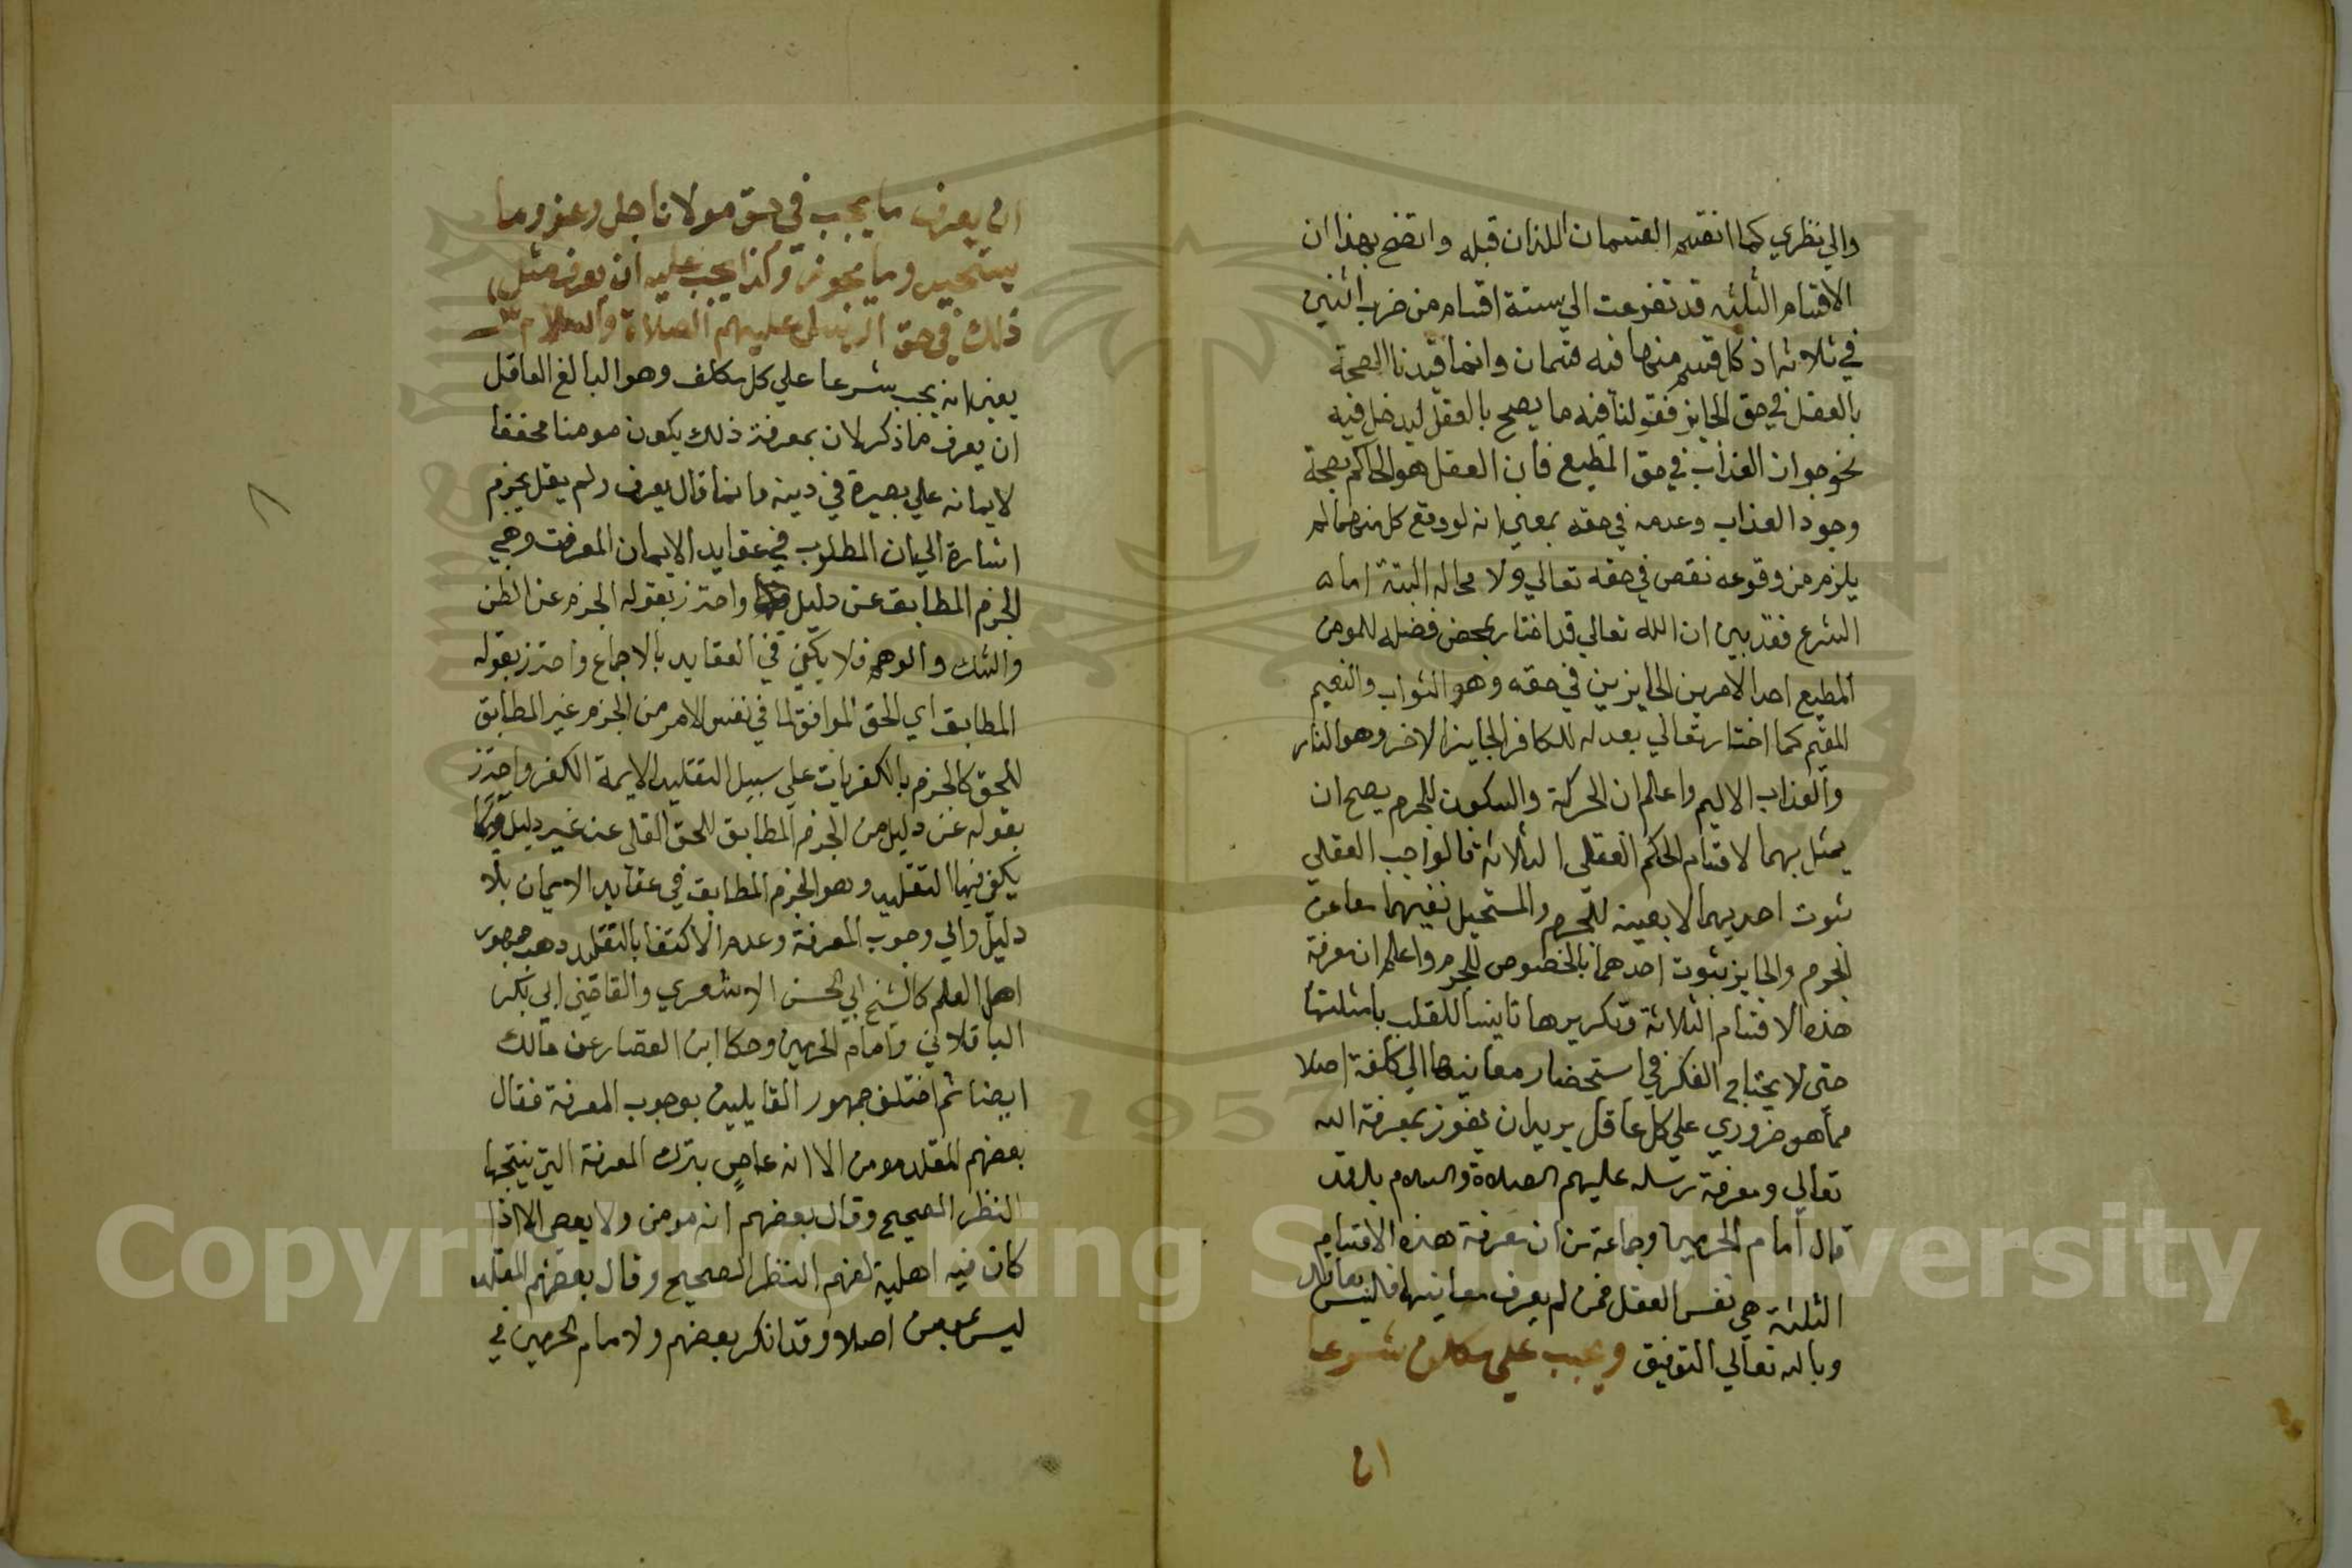 والي نظري كما انقسم القسمان اللذان قبله واتضح بهذا ان
الاقسام الثلثه قد تفرعت الي ستة اقسام من ضرب اثنين
في ثلاثة اذ كل قسم منها فيه قسمان وانما قيدنا الصحة
بالعقل في حق الجايز فقولنا فيه ما يصح بالعقل ليدخل فيه
نحو جواز العذاب في حق المطيع فان العقل هو الحاكم بصحة
وجود العذاب وعدمه في حقه بمعني انه لو وقع كل منهما لم
يلزم من وقوعه نقص في حقه تعالي ولا محاله البتة اما
الشرع فقد بين ان الله تعالي قد اختار بمحض فضله للمومن
المطيع احد الامرين الجايزين في حقه وهو الثواب والنعيم
المقيم كما اختار تعالي بعدله للكافر الجايز الاخر وهو النار
والعذاب الاليم واعلم ان الحركة والسكون للجرم يصح ان
يمثل بهما لاقسام الحكم العقلي الثلاثة فالواجب العقلي
ثبوت احديهما لا بعينه للجرم والمستحيل نفيهما معا عن
الجرم والجايز ثبوت احدهما بالخصوص للجرم واعلم ان معرفة
هذه الاقسام الثلاثة وتكريرها تانيسا للقلب بامثلتها
حتى لا يحتاج الفكر في استحضار معانيها الي كلفة اصلا
مما هو ضروري علي كل عاقل يريد ان يفوز بمعرفة الله
تعالي ومعرفة رسله عليهم الصلاة والسلام بل قد
قال امام الحرمين وجماعة ان معرفة هذه الاقسام
الثلثة هي نفس العقل فمن لم يعرف معانيها فليس بعاقل
وبالله تعالي التوفيق ويجب على كل مكلف شرعا
ان
ان يعرف ما يجب في حق مولانا جل وعز وما
يستحيل وما يجوز وكذا يجب عليه ان يعرف مثل
ذلك في حق الرسل عليهم الصلاة والسلام
يعني انه يجب شرعا علي كل مكلف وهو البالغ العاقل
ان يعرف ما ذكر لان بمعرفة ذلك يكون مومنا محققا
لايمانه علي بصيرة في دينه وانما قال يعرف ولم يقل يجزم
اشارة الي ان المطلوب في عقايد الايمان المعرفة وهي
الجزم المطابق عن دليل واحترز بقوله الجزم عن الظن
والشك والوهم فلا يكفي في العقايد بالاجماع واحترز بقوله
المطابق اي الحق الموافق لما في نفس الامر من الجزم غير المطابق
للحق كالجزم بالكفريات علي سبيل التقليد لايمة الكفر واحترز
بقوله عن دليل من الجزم المطابق للحق عن غير دليل
يكفي فيها التقليد وهو الجزم المطابق في عقايد الايمان بلا
دليل والي وجوب المعرفة وعدم الاكتفا بالتقليد ذهب جمهور
اهل العلم كالشيخ ابي الحسن الاشعري والقاضي ابي بكر
الباقلاني وامام الحرمين وحكا ابن القصار عن مالك
ايضا ثم اختلف جمهور القايلين بوجوب المعرفة فقال
بعضهم المقلد مومن الا انه عاص بترك المعرفة التي ينتجها
النظر الصحيح وقال بعضهم انه مومن ولا يعصي الا اذا
كان فيه اهلية لفهم النظر الصحيح وقال بعضهم المقلد
ليس بمومن اصلا وقد انكر بعضهم ولامام الحرمين في
٨
Copyright © King Saud University
1957